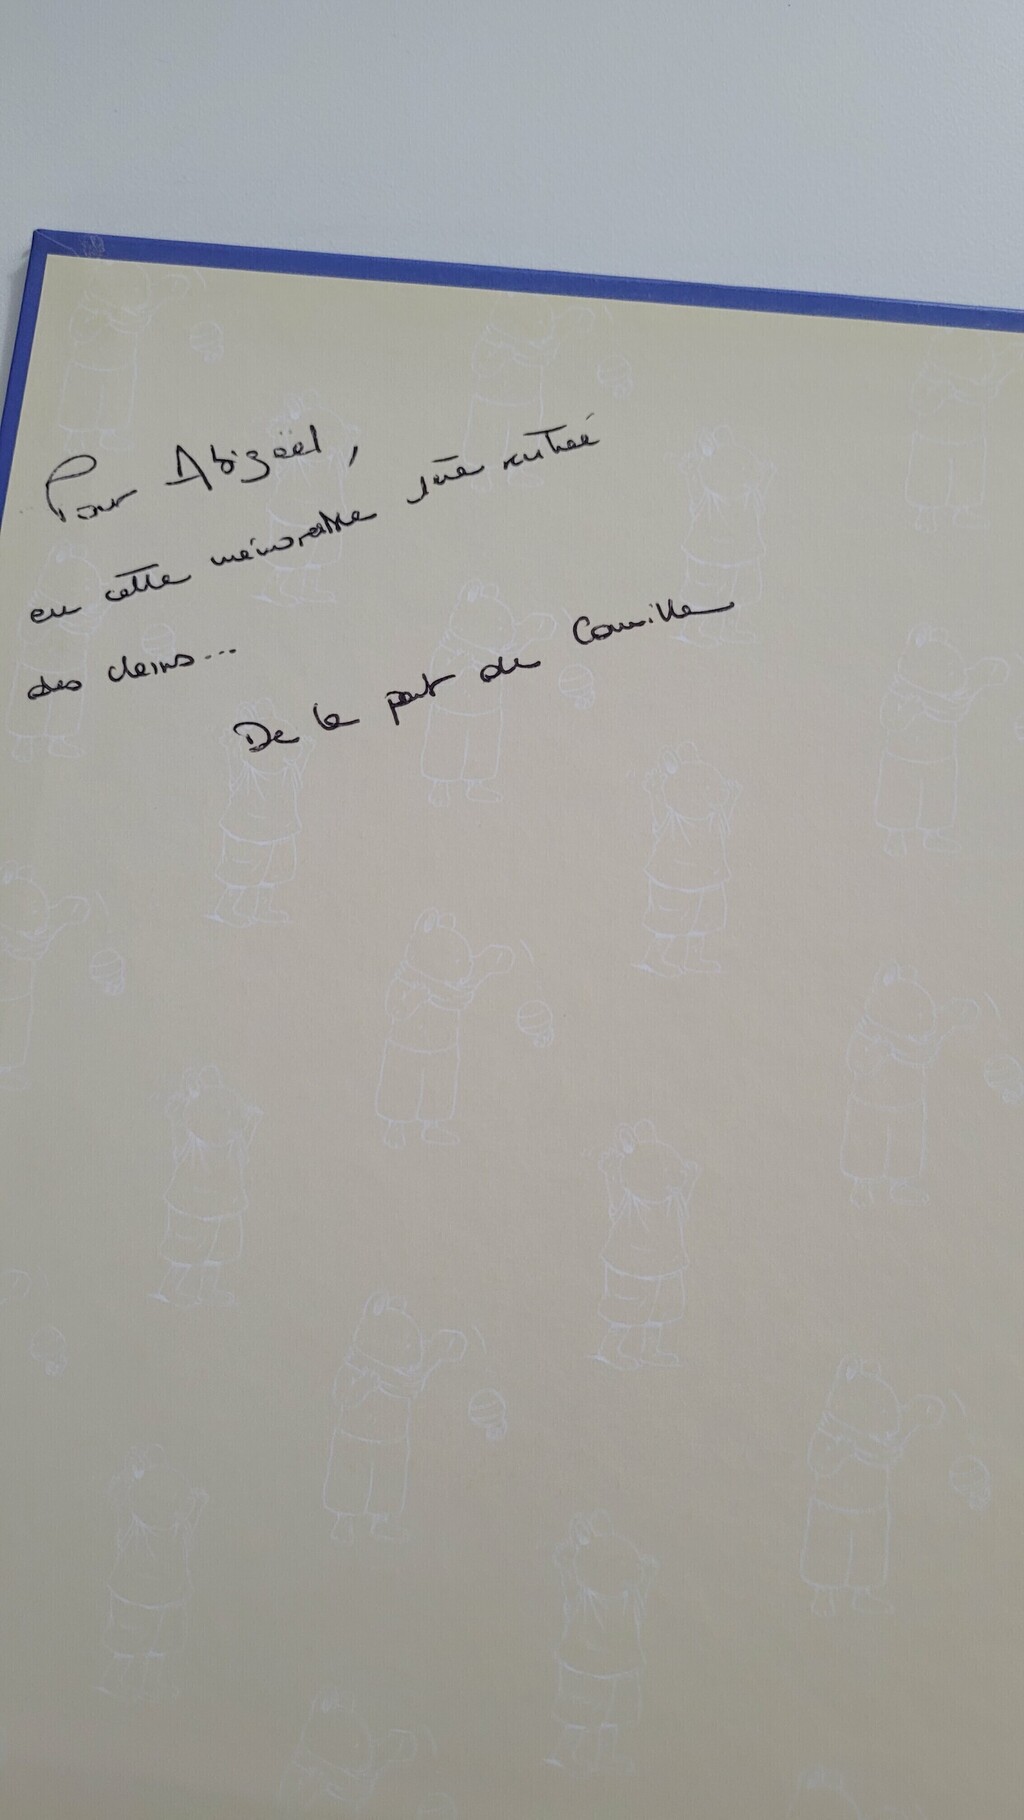 Pour Abigaël,
en cette mémorable 1ère rentrée
des clasns...
De la part de Camille